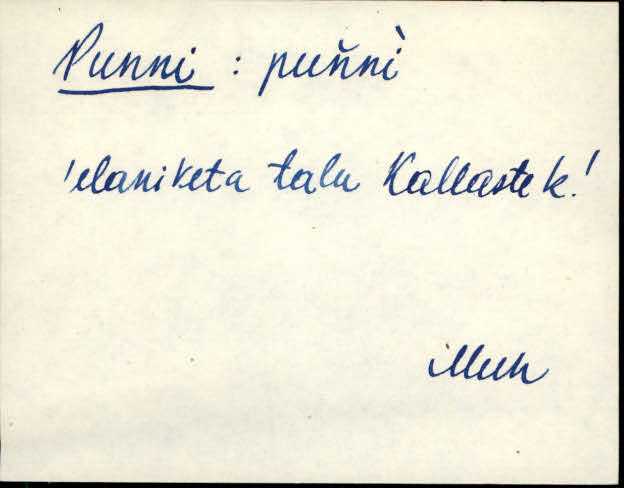 Punni : puňnì
'elaniketa talu Kallaste k.'
Muh